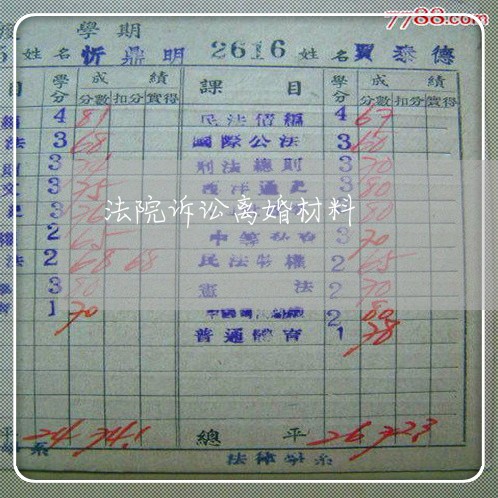 7788.com
學期
5 姓名 忻鼎明 2616 姓名 賈泰德
目 學分 成績 課目 學分 成績
分數 扣分 實得 分數 扣分 實得
4 81 民法債編 4 67
法 3 68 國際公法 3 60
3 刑法總則 3 70
3 75 3 80
3 3 80
權 2 65 3 70
法 2 68 68 民法物權 2 65
3 80 憲法 2 70
1 70 2 80
普通體育 1 78
法院诉讼离婚材料
平 24 74.1 總平 26 72.3
系 法律學系